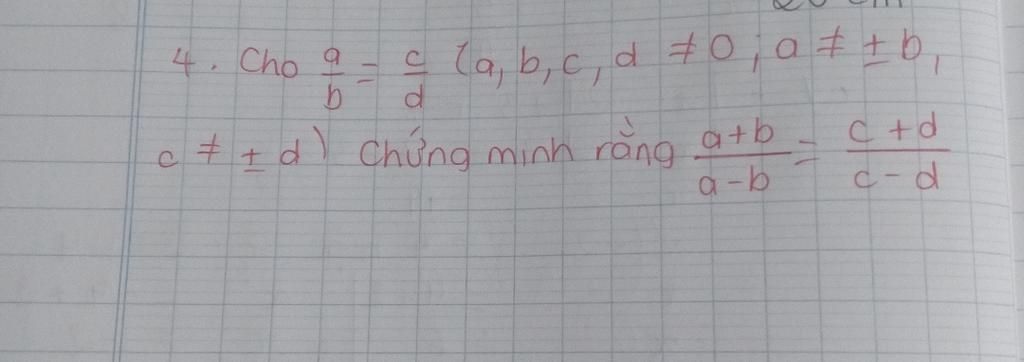 4. Cho a/b = c/d (a, b, c, d ≠ 0; a ≠ ± b,
c ≠ ± d) Chứng minh rằng (a+b)/(a-b) = (c+d)/(c-d)